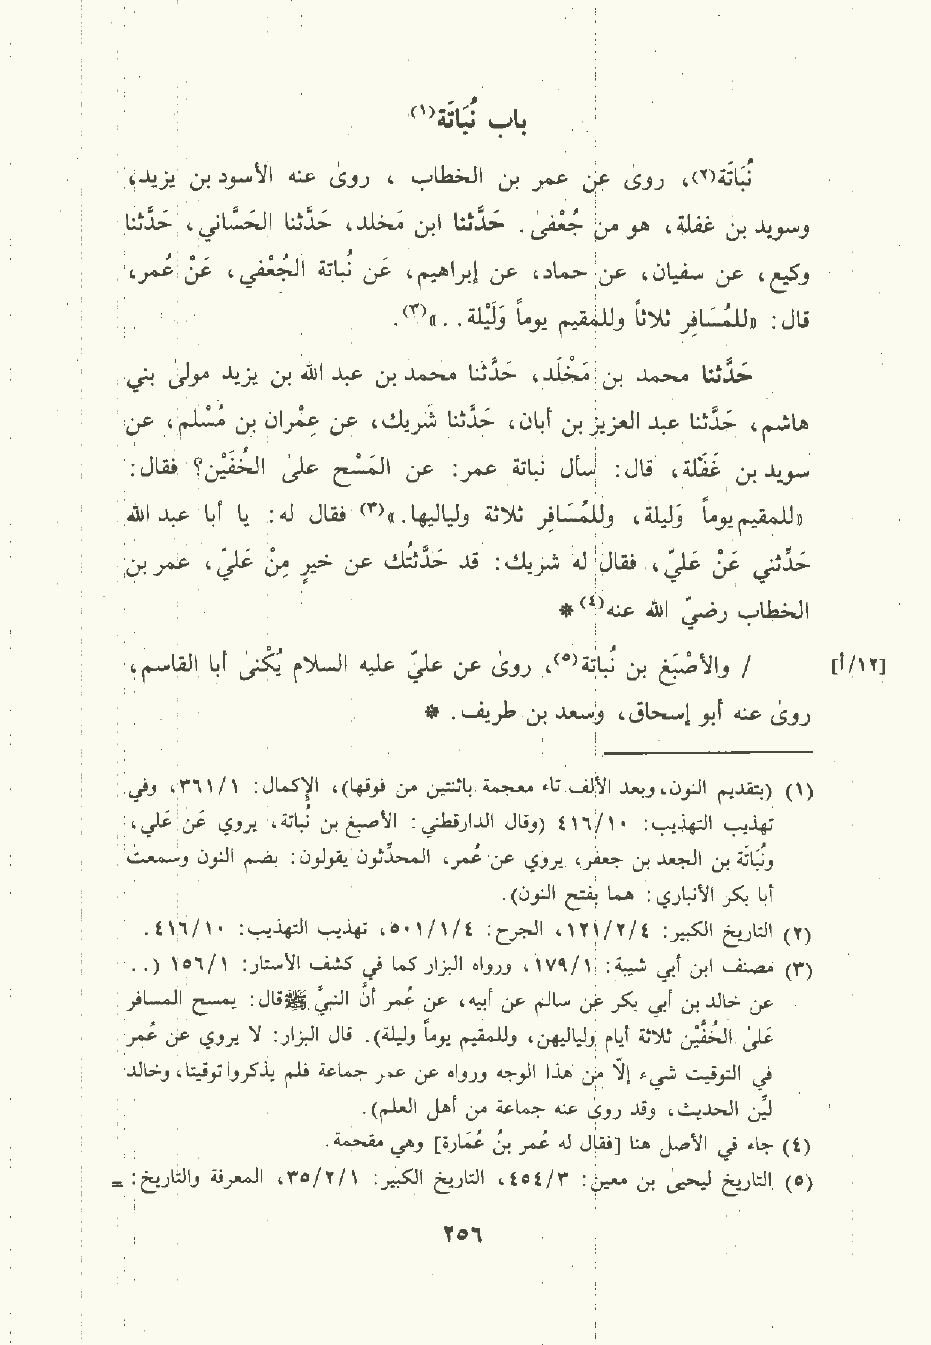 باب نُبَاتَة(١)
نُبَاتَة(٢)، روىٰ عن عمر بن الخطاب ، روىٰ عنه الأسود بن يزيد،
وسويد بن غفلة، هو من جُعْفىٰ. حَدَّثنا ابن مَخلد، حَدَّثنا الحَسَّاني، حَدَّثنا
وكيع، عن سفيان، عن حماد، عن إبراهيم، عَن نُباتة الجُعْفي، عَنْ عُمر،
قال: «للمُسَافِر ثلاثاً وللمقيم يوماً وَلَيْلة. .»(٣).
حَدَّثنا محمد بن مَخْلَد، حَدَّثنا محمد بن عبد الله بن يزيد مولىٰ بني
هاشم، حَدَّثنا عبد العزيز بن أبان، حَدَّثنا شَريك، عن عِمْران بن مُسْلم، عن
سويد بن غَفَلة، قال: سأل نباتة عمر: عن المَسْح علىٰ الخُفَيْن؟ فقال:
«للمقيم يوماً وَليلة، وللمُسَافِر ثلاثة ولياليها.»(٣) فقال له: يا أبا عبد الله
حَدِّثني عَنْ عَليّ، فقال له شريك: قد حَدَّثتُك عن خيرٍ مِنْ عَليّ، عمر بن
الخطاب رضيّ الله عنه(٤) *
[١٢/أ] / والأصْبَغ بن نُباتة(٥)، روىٰ عن عليّ عليه السلام يُكْنىٰ أبا القاسم،
روىٰ عنه أبو إسحاق، وسعد بن طريف. *
(١) (بتقديم النون، وبعد الألف تاء معجمة باثنتين من فوقها)، الإكمال: ٣٦١/١، وفي
تهذيب التهذيب: ٤١٦/١٠ (وقال الدارقطني: الأصبغ بن نُباتة، يروي عَن عَلي،
ونُبَاتَة بن الجعد بن جعفر، يروي عن عُمر، المحدِّثون يقولون: بضم النون وسمعت
أبا بكر الأنباري: هما بفتح النون).
(٢) التاريخ الكبير: ١٢١/٢/٤، الجرح: ٥٠١/١/٤، تهذيب التهذيب: ٤١٦/١٠.
(٣) مصنف ابن أبي شيبة: ١٧٩/١، ورواه البزار كما في كشف الأستار: ١٥٦/١ (. .
عن خالد بن أبي بكر عن سالم عن أبيه، عن عُمر أنَّ النبيَّ ﷺ قال: يمسح المسافر
عَلىٰ الخُفَّيْن ثلاثة أيام ولياليهن، وللمقيم يوماً وليلة). قال البزار: لا يروي عن عُمر
في التوقيت شيء إلاّ من هذا الوجه ورواه عن عمر جماعة فلم يذكروا توقيتا، وخالد
ليِّن الحديث، وقد روىٰ عنه جماعة من أهل العلم).
(٤) جاء في الأصل هنا [فقال له عُمر بْنُ عُمَارة] وهي مقحمة.
(٥) التاريخ ليحيىٰ بن معين: ٤٥٤/٣، التاريخ الكبير: ٣٥/٢/١، المعرفة والتاريخ: =
٢٥٦